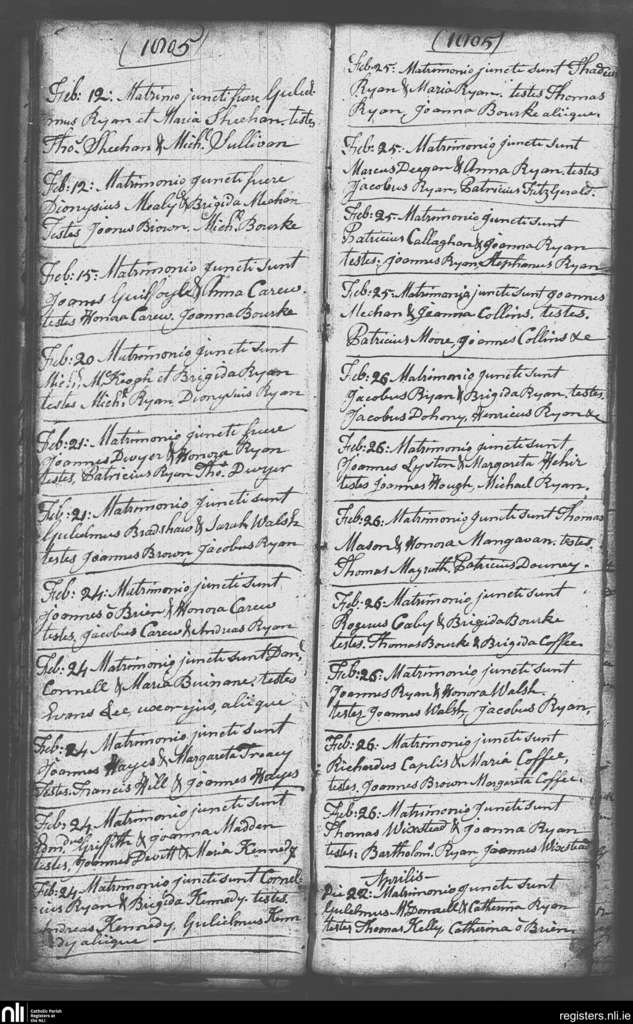 (1805)
Feb: 12: Matrimo juncti fuere Guliel-
mus Ryan et Maria Sheehan. testes
Thos. Sheehan & Michl. Sullivan
Feb: 12: Matrimonio juncti fuere
Dionysius Mealy & Brigida Meehan
Testes Joanus Brown. Michl. Bourke
Feb: 15: Matrimonio juncti sunt
Joannes Guilfoyle & Anna Carew.
testes Honora Carew. Joanna Bourke
Feb: 20 Matrimonio juncti sunt
Michl. McKeogh et Brigida Ryan
testes Michl. Ryan Dionysius Ryan
Feb: 21: Matrimonio juncti fuere
Joannes Dwyer & Honora Ryan
testes, Patricius Ryan Thos. Dwyer
Feb: 21: Matrimonio juncti sunt
Gulielmus Bradshaw & Sarah Walsh
testes Joannes Brown Jacobus Ryan
Feb: 24: Matrimonio juncti sunt
Joannes ô Brien & Honora Carew
testes, Jacobus Carew & Andreas Ryan
Feb: 24 Matrimonio juncti sunt
Connell & Maria testes
Evans Lee, uxor ejus, aliique
Feb: 24 Matrimonio juncti sunt
Joannes Hayes & Margareta Treacy
Testes. Francis Hill & Joannes Hayes
Feb: 24 Matrimonio juncti sunt
Edmdus Griffith & Joanna Madden
testes, Joannes Devitt & Maria Kennedy
Feb: 24 Matrimonio juncti sunt Cornel-
ius Ryan & Brigida Kennedy. testes.
Andreas Kennedy, Gulielmus Kenn
dy aliique
(1805)
Feb: 25: Matrimonio juncti sunt Thadeus
Ryan & Maria Ryan. testes Thomas
Ryan, Joanna Bourke aliique.
Feb: 25. Matrimonio juncti sunt
Marcus Deegan & Anna Ryan. testes
Jacobus Ryan, Patricius FitzGerald.
Feb: 25 Matrimonio juncti sunt
Patricius Callaghan & Joanna Ryan
testes: Joannes Ryan, Stephanus Ryan
Feb: 25 Matrimonia juncti sunt Joannes
Mechan & Joanna Collins, testes.
Patricius Moore, Joannes Collins &c
Feb: 26 Matrimonio juncti sunt
Jacobus Ryan & Brigida Ryan, testes.
Jacobus Dohony, Henricus Ryan &c
Feb: 26: Matrimonio juncti sunt
Joannes Lyston & Margareta Hehir
testes Joannes Hough, Michael Ryan.
Feb: 26: Matrimonio juncti sunt Thomas
Mason & Honora Mangavan. testes.
Thomas Patricius Downey.
Feb: 26 Matrimonio juncti sunt
Rogerus Gaby & Brigida Bourke
testes. Thomas Bourke & Brigida Coffee
Feb: 26. Matrimonio juncti sunt
Joannes Ryan & Honora Walsh.
testes Joannes Walsh, Jacobus Ryan,
Feb: 26: Matrimonio juncti sunt
Richardus Caplis & Maria Coffee,
testes. Joannes Brown Margareta Coffee.
Feb: 26. Matrimonio juncti sunt
Thomas Wixstead & Joanna Ryan
testes: Bartholoms. Ryan Joannes Wixstead
Aprilis
Die 22: Matrimonio juncti sunt
Gulielmus McDonnell & Catherina Ryan
testes Thomas Kelly, Catherina ô Brien,
nli
Catholic Parish
Registers at
the NLI
registers.nli.ie